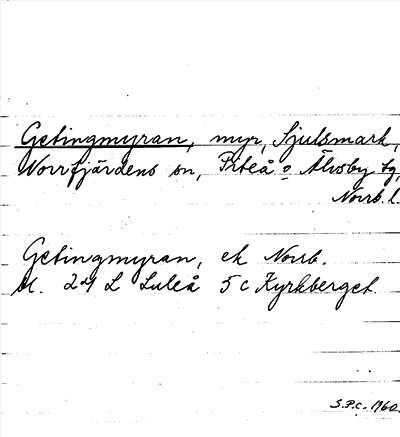 Getingmyran, myr, Sjulsmark,
Norrfjärdens sn, Piteå o Älvsby tg,
Norrb. l.
Getingmyran, ek Norrb.
bl. 24 L Luleå 5 c Kyrkberget
S.P.C. 1960.